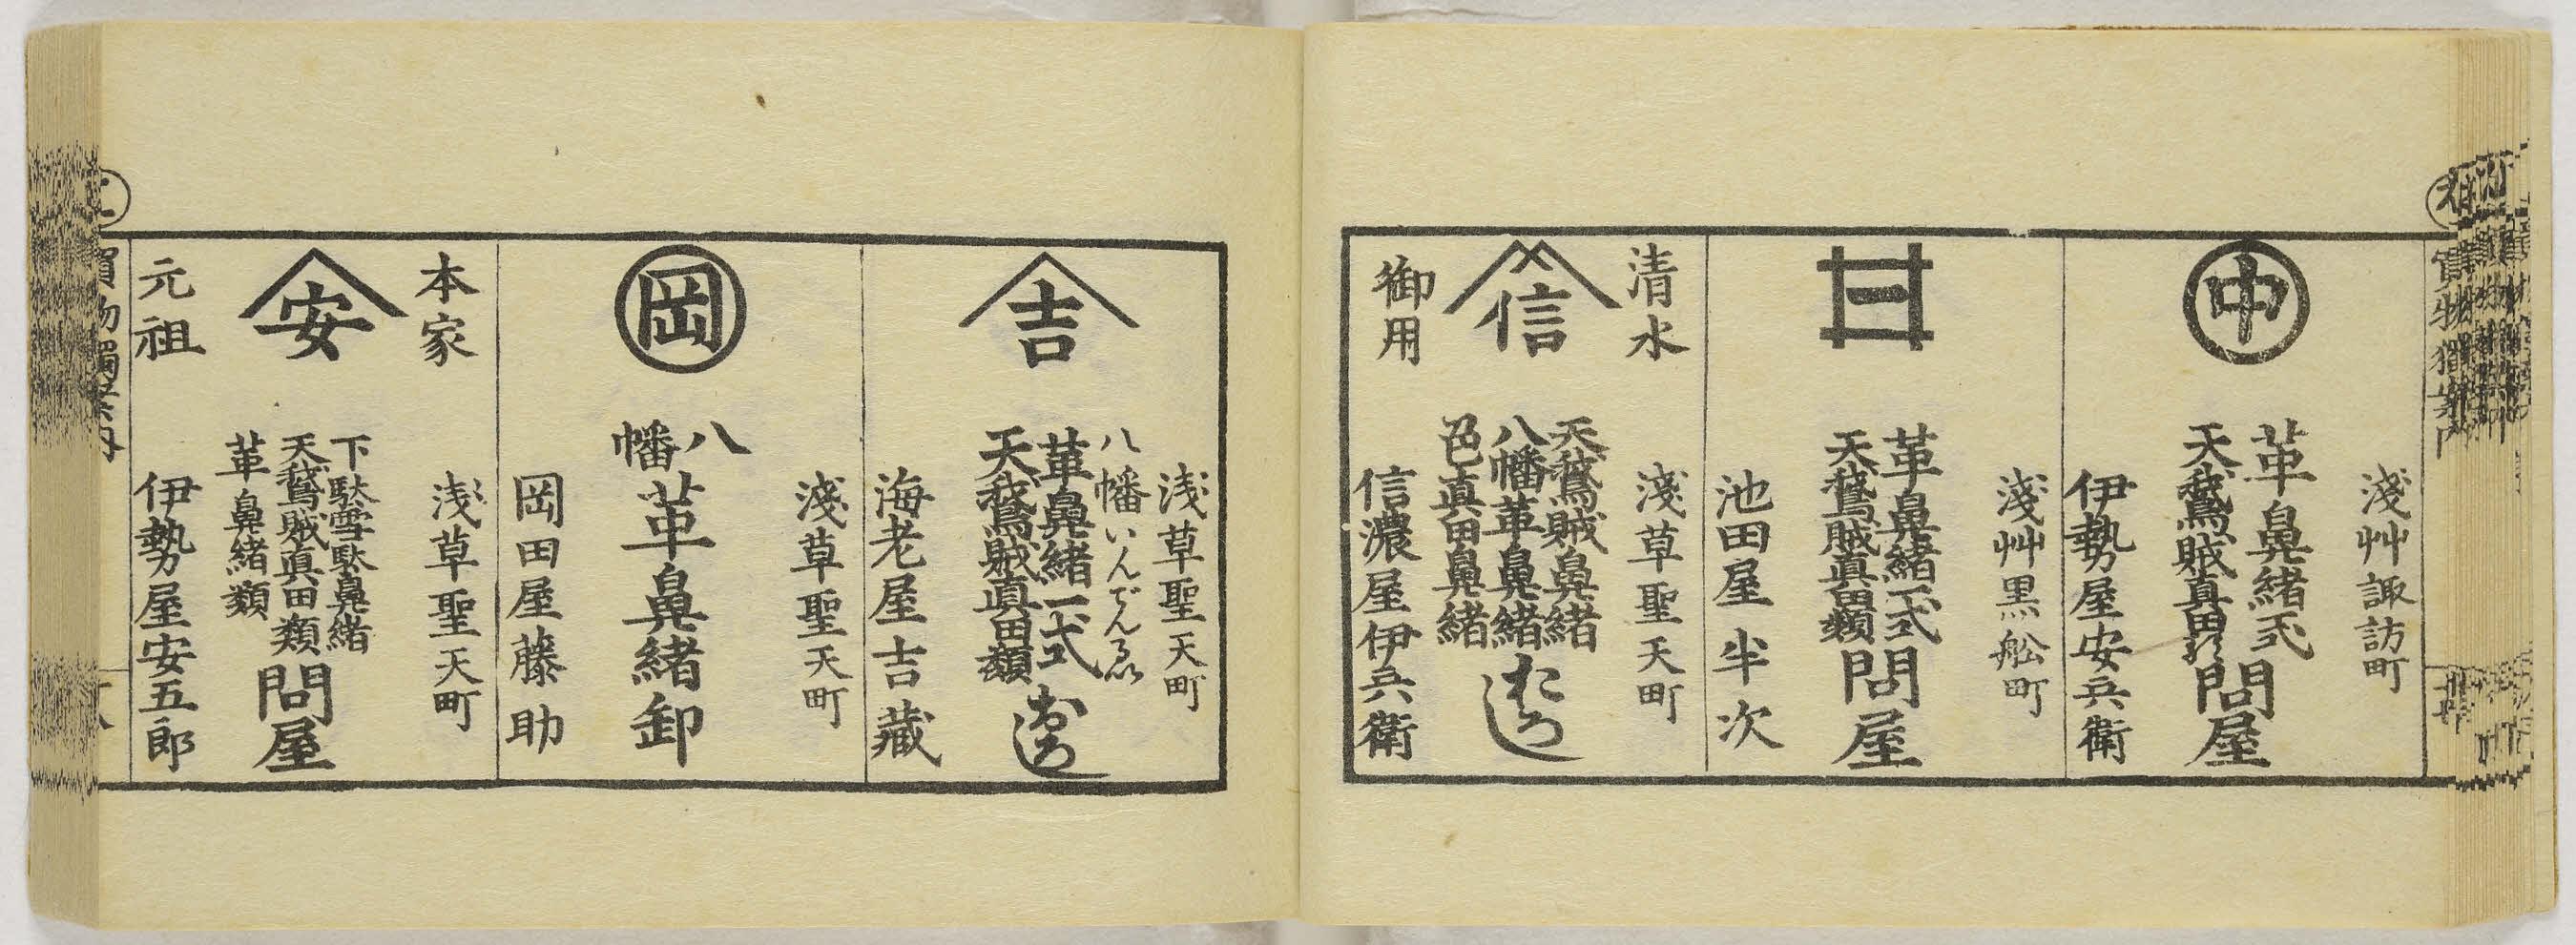 中
淺艸諏訪町
革鼻緒一式
天鵞賊真田類
問屋
伊勢屋安兵衛
淺艸黒舩町
革鼻緒一式
天鵞賊真田類
問屋
池田屋半次
清水
信
御用
淺草聖天町
天鵞賊鼻緒
八幡革鼻緒
色真田鼻緒
おろし
信濃屋伊兵衛
吉
浅草聖天町
八幡いんでんるい
革鼻緒一式
天鵞賊真田類
おろし
海老屋吉藏
岡
淺草聖天町
八幡
革鼻緒卸
岡田屋藤助
本家
安
元祖
浅草聖天町
下駄雪駄鼻緒
天鵞賊真田類
革鼻緒類
問屋
伊勢屋安五郎